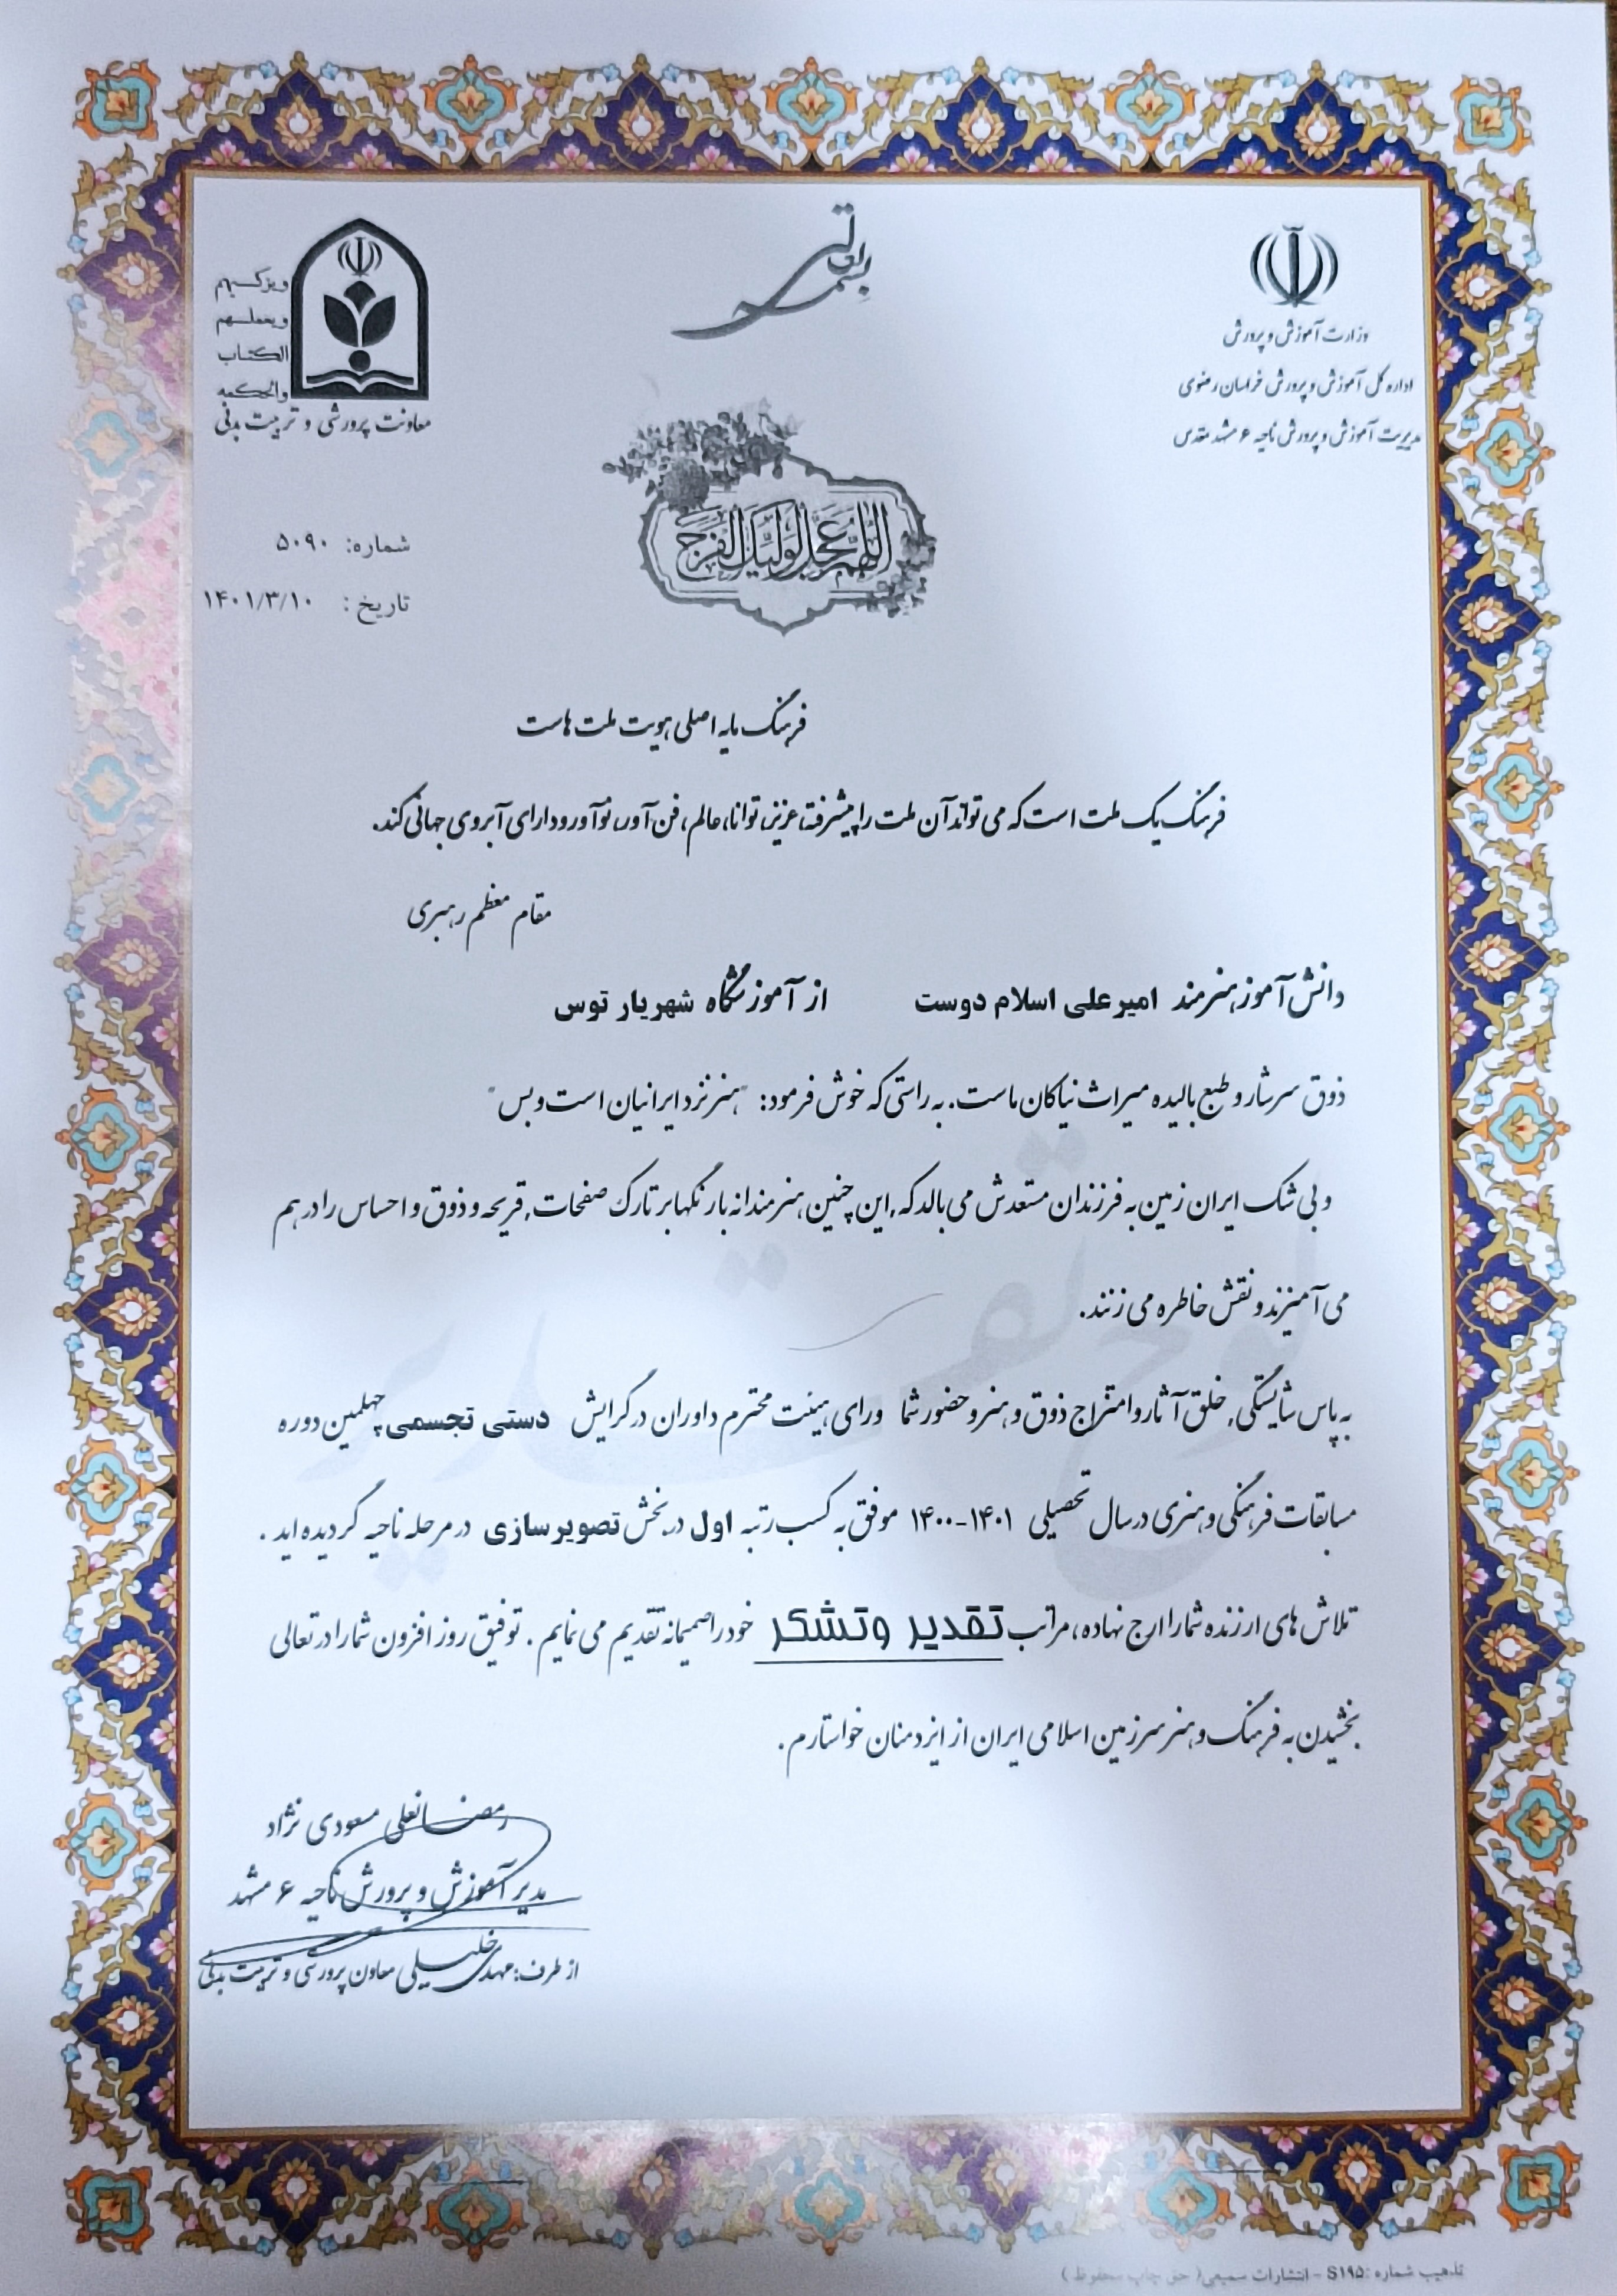 بسمه تعالی
وزارت آموزش و پرورش
اداره کل آموزش و پرورش خراسان رضوی
مدیریت آموزش و پرورش ناحیه ۶ مشهد مقدس
ویزکیهم
ویعلمهم
الکتاب
والحکمه
معاونت پرورشی و تربیت بدنی
اللهم عجل لولیک الفرج
شماره: ۵۰۹۰
تاریخ: ۱۴۰۱/۳/۱۰
فرهنگ مایه اصلی هویت ملت هاست
فرهنگ یک ملت است که می تواند آن ملت را پیشرفته، عزیز، توانا، عالم، فن آور، نوآور و دارای آبروی جهانی کند.
مقام معظم رهبری
دانش آموز هنرمند امیرعلی اسلام دوست از آموزشگاه شهریار توس
ذوق سرشار و طبع بالیده میراث نیاکان ماست. به راستی که خوش فرمود: "هنر نزد ایرانیان است و بس"
و بی شک ایران زمین به فرزندان مستعدش می بالد که, این چنین هنرمندانه با رنگها بر تارک صفحات, قریحه و ذوق و احساس را در هم
می آمیزند و نقش خاطره می زنند.
به پاس شایستگی, خلق آثار و امتزاج ذوق و هنر و حضور شما ورای هیئت محترم داوران در گرایش دستی تجسمی چهلمین دوره
مسابقات فرهنگی و هنری در سال تحصیلی ۱۴۰۱-۱۴۰۰ موفق به کسب رتبه اول در بخش تصویرسازی در مرحله ناحیه گردیده اید .
تلاش های ارزنده شما را ارج نهاده، مراتب تقدیر وتشکر خود را صمیمانه تقدیم می نمایم . توفیق روز افزون شما را در تعالی
بخشیدن به فرهنگ و هنر سرزمین اسلامی ایران از ایزد منان خواستارم .
لوح تقدیر
رمضانعلی مسعودی نژاد
مدیر آموزش و پرورش ناحیه ۶ مشهد
از طرف: مهدی خلیلی معاون پرورشی و تربیت بدنی
تذهیب شماره :S۱۹۵ - انتشارات سمیعی( حق چاپ محفوظ )